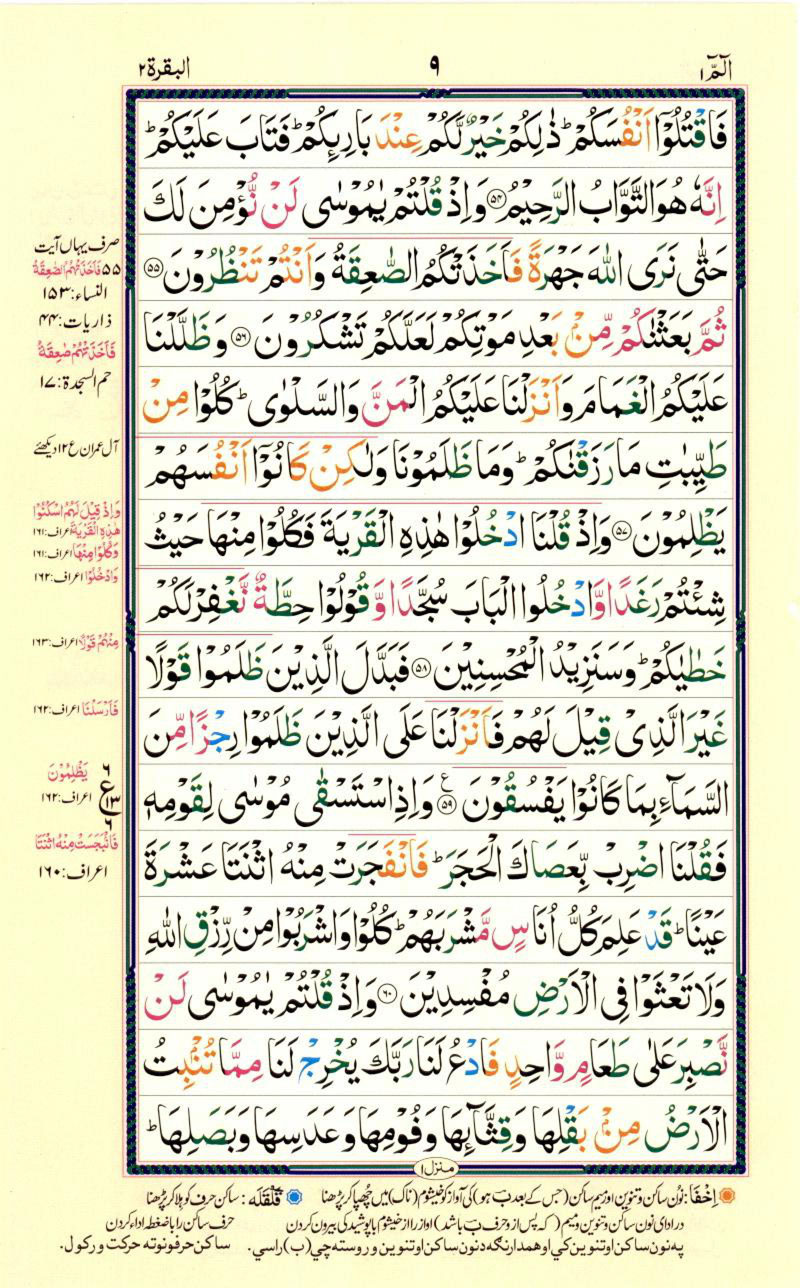 الٓمّٓ ١
٩
البقرة ٢
فَاقْتُلُوْۤا اَنْفُسَكُمْ ؕ ذٰلِكُمْ خَیْرٌ لَّكُمْ عِنْدَ بَارِىِٕكُمْ ؕ فَتَابَ عَلَیْكُمْ ؕ
اِنَّهٗ هُوَ التَّوَّابُ الرَّحِیْمُ ۝۵۴ وَاِذْ قُلْتُمْ یٰمُوْسٰی لَنْ نُّؤْمِنَ لَكَ
حَتّٰی نَرَی اللّٰهَ جَهْرَةً فَاَخَذَتْكُمُ الصّٰعِقَةُ وَاَنْتُمْ تَنْظُرُوْنَ ۝۵۵
ثُمَّ بَعَثْنٰكُمْ مِّنْۢ بَعْدِ مَوْتِكُمْ لَعَلَّكُمْ تَشْكُرُوْنَ ۝۵۶ وَظَلَّلْنَا
عَلَیْكُمُ الْغَمَامَ وَاَنْزَلْنَا عَلَیْكُمُ الْمَنَّ وَالسَّلْوٰی ؕ كُلُوْا مِنْ
طَیِّبٰتِ مَا رَزَقْنٰكُمْ ؕ وَمَا ظَلَمُوْنَا وَلٰكِنْ كَانُوْۤا اَنْفُسَهُمْ
یَظْلِمُوْنَ ۝۵۷ وَاِذْ قُلْنَا ادْخُلُوْا هٰذِهِ الْقَرْیَةَ فَكُلُوْا مِنْهَا حَیْثُ
شِئْتُمْ رَغَدًا وَّادْخُلُوا الْبَابَ سُجَّدًا وَّقُوْلُوْا حِطَّةٌ نَّغْفِرْ لَكُمْ
خَطٰیٰكُمْ ؕ وَسَنَزِیْدُ الْمُحْسِنِیْنَ ۝۵۸ فَبَدَّلَ الَّذِیْنَ ظَلَمُوْا قَوْلًا
غَیْرَ الَّذِیْ قِیْلَ لَهُمْ فَاَنْزَلْنَا عَلَی الَّذِیْنَ ظَلَمُوْا رِجْزًا مِّنَ
السَّمَآءِ بِمَا كَانُوْا یَفْسُقُوْنَ ۝۵۹ ع وَاِذِ اسْتَسْقٰی مُوْسٰی لِقَوْمِهٖ
فَقُلْنَا اضْرِبْ بِّعَصَاكَ الْحَجَرَ ؕ فَانْفَجَرَتْ مِنْهُ اثْنَتَا عَشْرَةَ
عَیْنًا ؕ قَدْ عَلِمَ كُلُّ اُنَاسٍ مَّشْرَبَهُمْ ؕ كُلُوْا وَاشْرَبُوْا مِنْ رِّزْقِ اللّٰهِ
وَلَا تَعْثَوْا فِی الْاَرْضِ مُفْسِدِیْنَ ۝۶۰ وَاِذْ قُلْتُمْ یٰمُوْسٰی لَنْ
نَّصْبِرَ عَلٰی طَعَامٍ وَّاحِدٍ فَادْعُ لَنَا رَبَّكَ یُخْرِجْ لَنَا مِمَّا تُنْۢبِتُ
الْاَرْضُ مِنْۢ بَقْلِهَا وَقِثَّآىِٕهَا وَفُوْمِهَا وَعَدَسِهَا وَبَصَلِهَا ؕ
صرف یہاں آیت
۵۵ فَاَخَذَتْهُمُ الصّٰعِقَةُ
النساء: ۱۵۳
ذاریات: ۴۴
فَاَخَذَتْهُمْ صٰعِقَةُ
حم السجدة: ۱۷
آل عمران ع ۱۲ دیکھئے
وَاِذْ قِیْلَ لَهُمُ اسْكُنُوْا
هٰذِهِ الْقَرْیَةَ اعراف: ۱۶۱
وَكُلُوْا مِنْهَا اعراف: ۱۶۱
وَادْخُلُوا اعراف: ۱۶۲
مِنْهُمْ قَوْلًا اعراف: ۱۶۳
فَاَرْسَلْنَا اعراف: ۱۶۲
یَظْلِمُوْنَ ۶
اعراف: ۱۶۲ ع ۱۳
۶
فَانْۢبَجَسَتْ مِنْهُ اثْنَتَا
اعراف: ۱۶۰
منزل ١
اِخْفَا: نون ساکن و تنوین اور میم ساکن (جس کے بعد ب ہو) کی آواز کو خیشوم (ناک) میں چھپا کر پڑھنا
قَلْقَلَه: ساکن حرف کو ہلا کر پڑھنا
در ادای نون ساکن و تنوین و میم (که پس از و حرف ب باشد) آواز را از خیشوم با پوشیدگی بیرون کردن
حرف ساکن را با ضغطه ادا کردن
په نون ساکن او تنوین کي او همدارنګه د نون ساکن او تنوین و روسته چي (ب) راسي.
ساکن حرفونو ته حرکت ورکول.